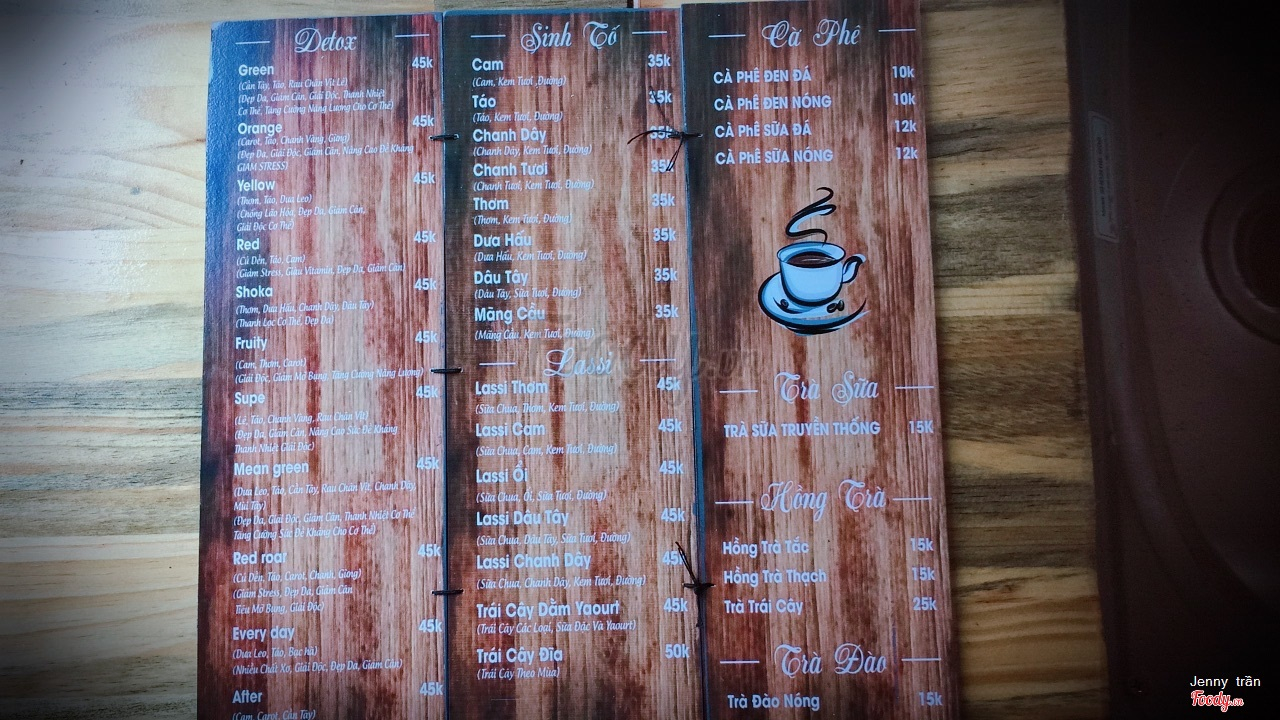 Detox
Green 45k
(Cần Tây, Táo, Rau Chân Vịt Lê)
(Đẹp Da, Giảm Cân, Giải Độc, Thanh Nhiệt
Cơ Thể, Tăng Cường Năng Lượng Cho Cơ Thể)
Orange 45k
(Carot, Táo, Chanh Vàng, Gừng)
(Đẹp Da, Giải Độc, Giảm Cân, Nâng Cao Đề Kháng
GIẢM STRESS)
Yellow 45k
(Thơm, Táo, Dưa Leo)
(Chống Lão Hóa, Đẹp Da, Giảm Cân,
Giải Độc Cơ Thể)
Red 45k
(Củ Dền, Táo, Cam)
(Giảm Stress, Giàu Vitamin, Đẹp Da, Giảm Cân)
Shoka 45k
(Thơm, Dưa Hấu, Chanh Dây, Dâu Tây)
(Thanh Lọc Cơ Thể, Đẹp Da)
Fruity 45k
(Cam, Thơm, Carot)
(Giải Độc, Giảm Mỡ Bụng, Tăng Cường Năng Lượng)
Supe 45k
(Lê, Táo, Chanh Vàng, Rau Chân Vịt)
(Đẹp Da, Giảm Cân, Nâng Cao Sức Đề Kháng
Thanh Nhiệt Giải Độc)
Mean green 45k
(Dưa Leo, Táo, Cần Tây, Rau Chân Vịt, Chanh Dây,
Mùi Tây)
(Đẹp Da, Giải Độc, Giảm Cân, Thanh Nhiệt Cơ Thể
Tăng Cường Sức Đề Kháng Cho Cơ Thể)
Red roar 45k
(Củ Dền, Táo, Carot, Chanh, Gừng)
(Giảm Stress, Đẹp Da, Giảm Cân
Tiêu Mỡ Bụng, Giải Độc)
Every day 45k
(Dưa Leo, Táo, Bạc hà)
(Nhiều Chất Xơ, Giải Độc, Đẹp Da, Giảm Cân)
After 45k
(Cam, Carot, Cần Tây)
Sinh Tố
Cam 35k
(Cam, Kem Tươi ,Đường)
Táo 35k
(Táo, Kem Tươi, Đường)
Chanh Dây 35k
(Chanh Dây, Kem Tươi, Đường)
Chanh Tươi 35k
(Chanh Tươi, Kem Tươi, Đường)
Thơm 35k
(Thơm, Kem Tươi, Đường)
Dưa Hấu 35k
(Dưa Hấu, Kem Tươi, Đường)
Dâu Tây 35k
(Dâu Tây, Sữa Tươi, Đường)
Mãng Cầu 35k
(Mãng Cầu, Kem Tươi, Đường)
Lassi
Lassi Thơm 45k
(Sữa Chua, Thơm, Kem Tươi, Đường)
Lassi Cam 45k
(Sữa Chua, Cam, Kem Tươi, Đường)
Lassi Ổi 45k
(Sữa Chua, Ổi, Sữa Tươi, Đường)
Lassi Dâu Tây 45k
(Sữa Chua, Dâu Tây, Sữa Tươi, Đường)
Lassi Chanh Dây 45k
(Sữa Chua, Chanh Dây, Kem Tươi, Đường)
Trái Cây Dằm Yaourt 45k
(Trái Cây Các Loại, Sữa Đặc Và Yaourt)
Trái Cây Đĩa 50k
(Trái Cây Theo Mùa)
Cà Phê
CÀ PHÊ ĐEN ĐÁ 10k
CÀ PHÊ ĐEN NÓNG 10k
CÀ PHÊ SỮA ĐÁ 12k
CÀ PHÊ SỮA NÓNG 12k
Trà Sữa
TRÀ SỮA TRUYỀN THỐNG 15K
Hồng Trà
Hồng Trà Tắc 15k
Hồng Trà Thạch 15k
Trà Trái Cây 25k
Trà Đào
Trà Đào Nóng 15k
Jenny trần
Foody.vn